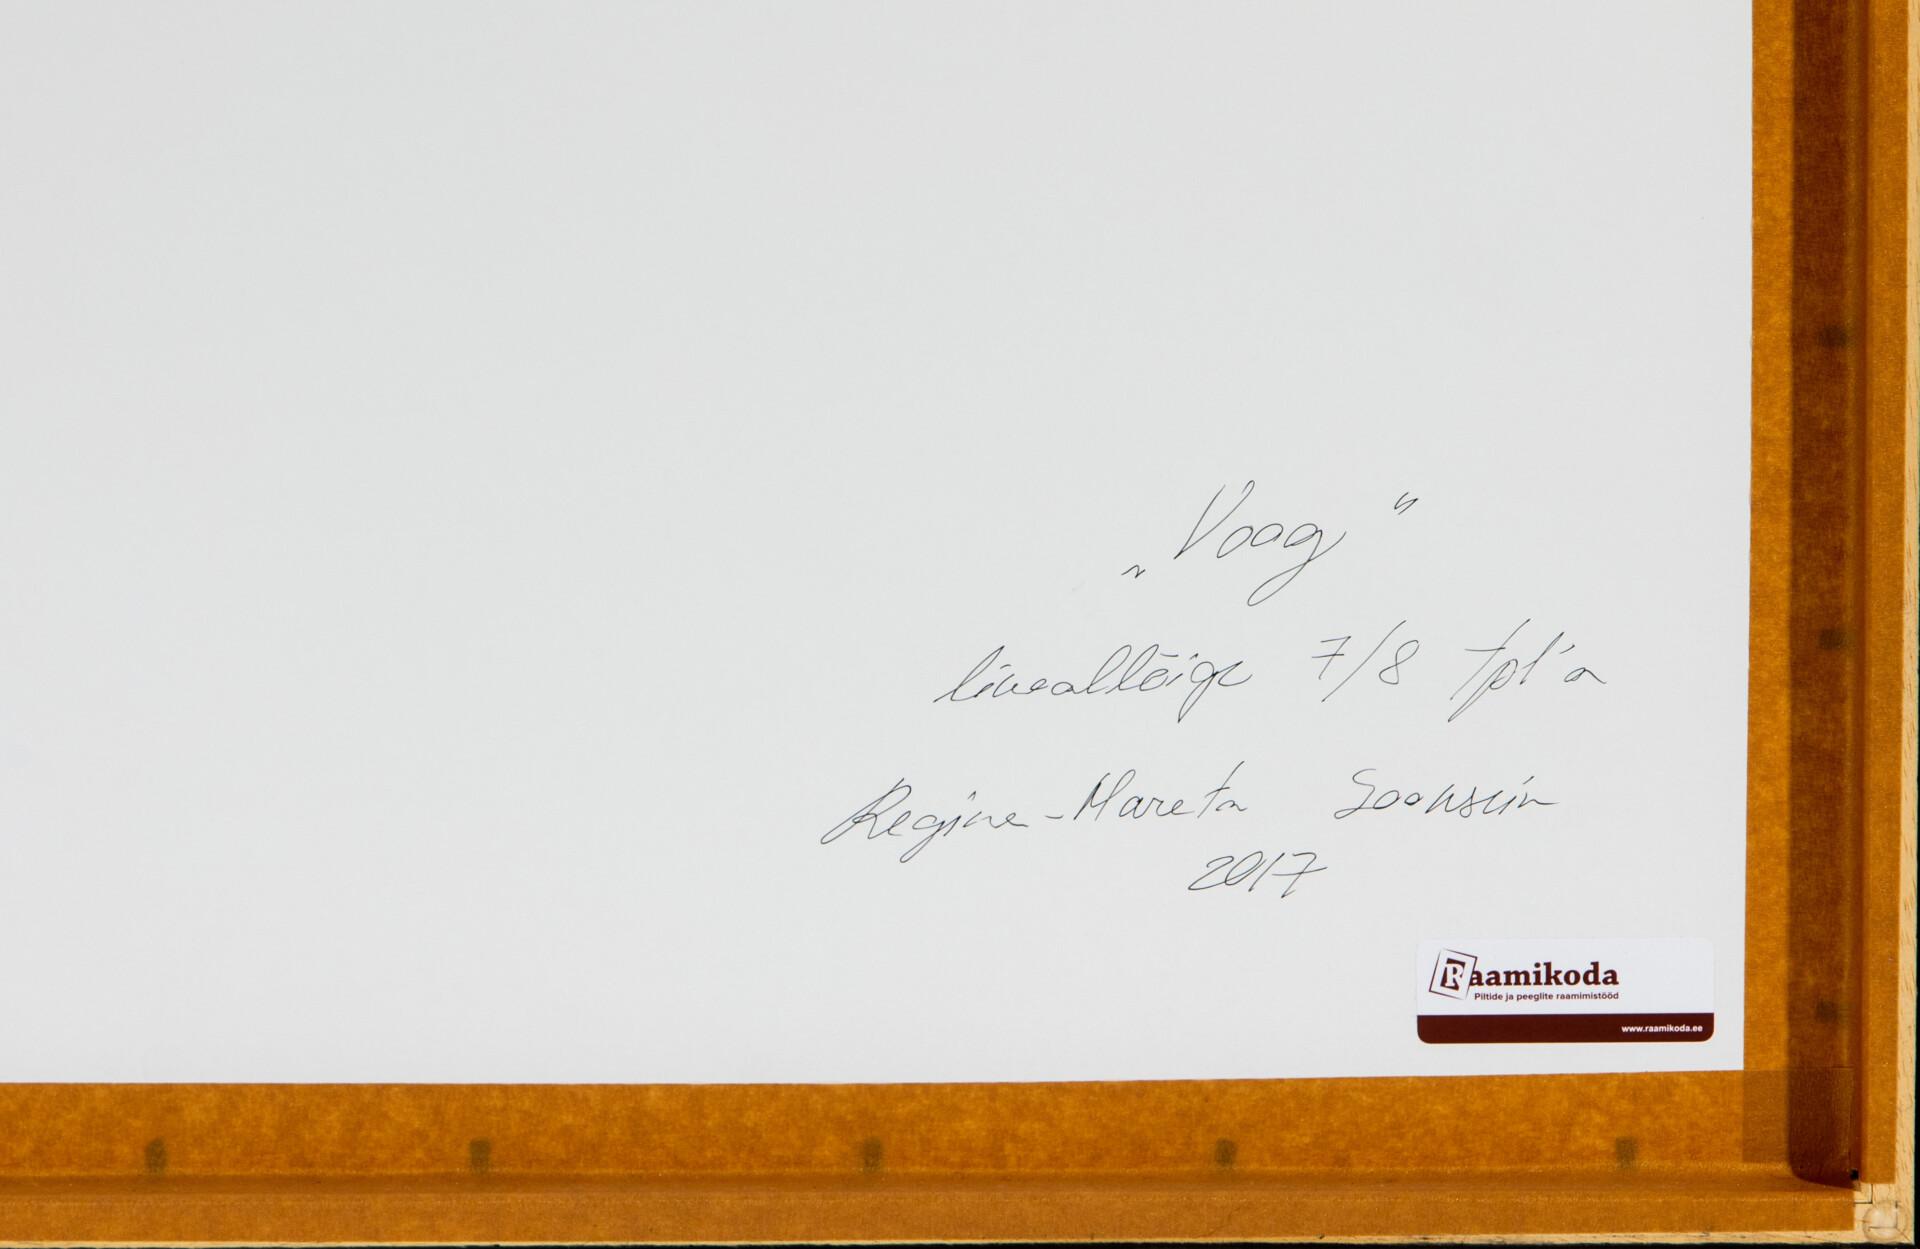 „Voag“
lineallõige 7/8 tpl'a
Regina-Mareta Soonsein
2017
Raamikoda
Piltide ja peeglite raamimistööd
www.raamikoda.ee